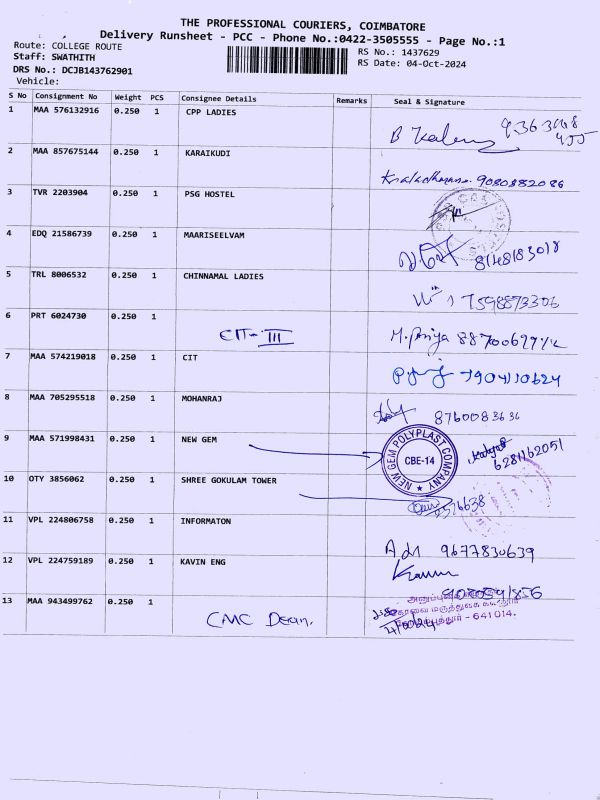 THE PROFESSIONAL COURIERS, COIMBATORE
Delivery Runsheet - PCC - Phone No.:0422-3505555 - Page No.:1
Route: COLLEGE ROUTE
RS No.: 1437629
Staff: SWATHITH
RS Date: 04-Oct-2024
DRS No.: DCJB143762901
Vehicle:
S No Consignment No Weight PCS Consignee Details Remarks Seal & Signature
1 MAA 576132916 0.250 1 CPP LADIES
2 MAA 857675144 0.250 1 KARAIKUDI 9080882086
3 TVR 2203904 0.250 1 PSG HOSTEL
4 EDQ 21586739 0.250 1 MAARISEELVAM 8148183018
5 TRL 8006532 0.250 1 CHINNAMAL LADIES 7598873306
6 PRT 6024730 0.250 1 CIT-III M. Priya
7 MAA 574219018 0.250 1 CIT 7904110624
8 MAA 705295518 0.250 1 MOHANRAJ 8760083636
9 MAA 571998431 0.250 1 NEW GEM NEW GEM POLYPLAST COMPANY CBE-14 6281162051
10 OTY 3856062 0.250 1 SHREE GOKULAM TOWER
11 VPL 224806758 0.250 1 INFORMATON 9677830639
12 VPL 224759189 0.250 1 KAVIN ENG
13 MAA 943499762 0.250 1 CMC Dean. - 641 014.